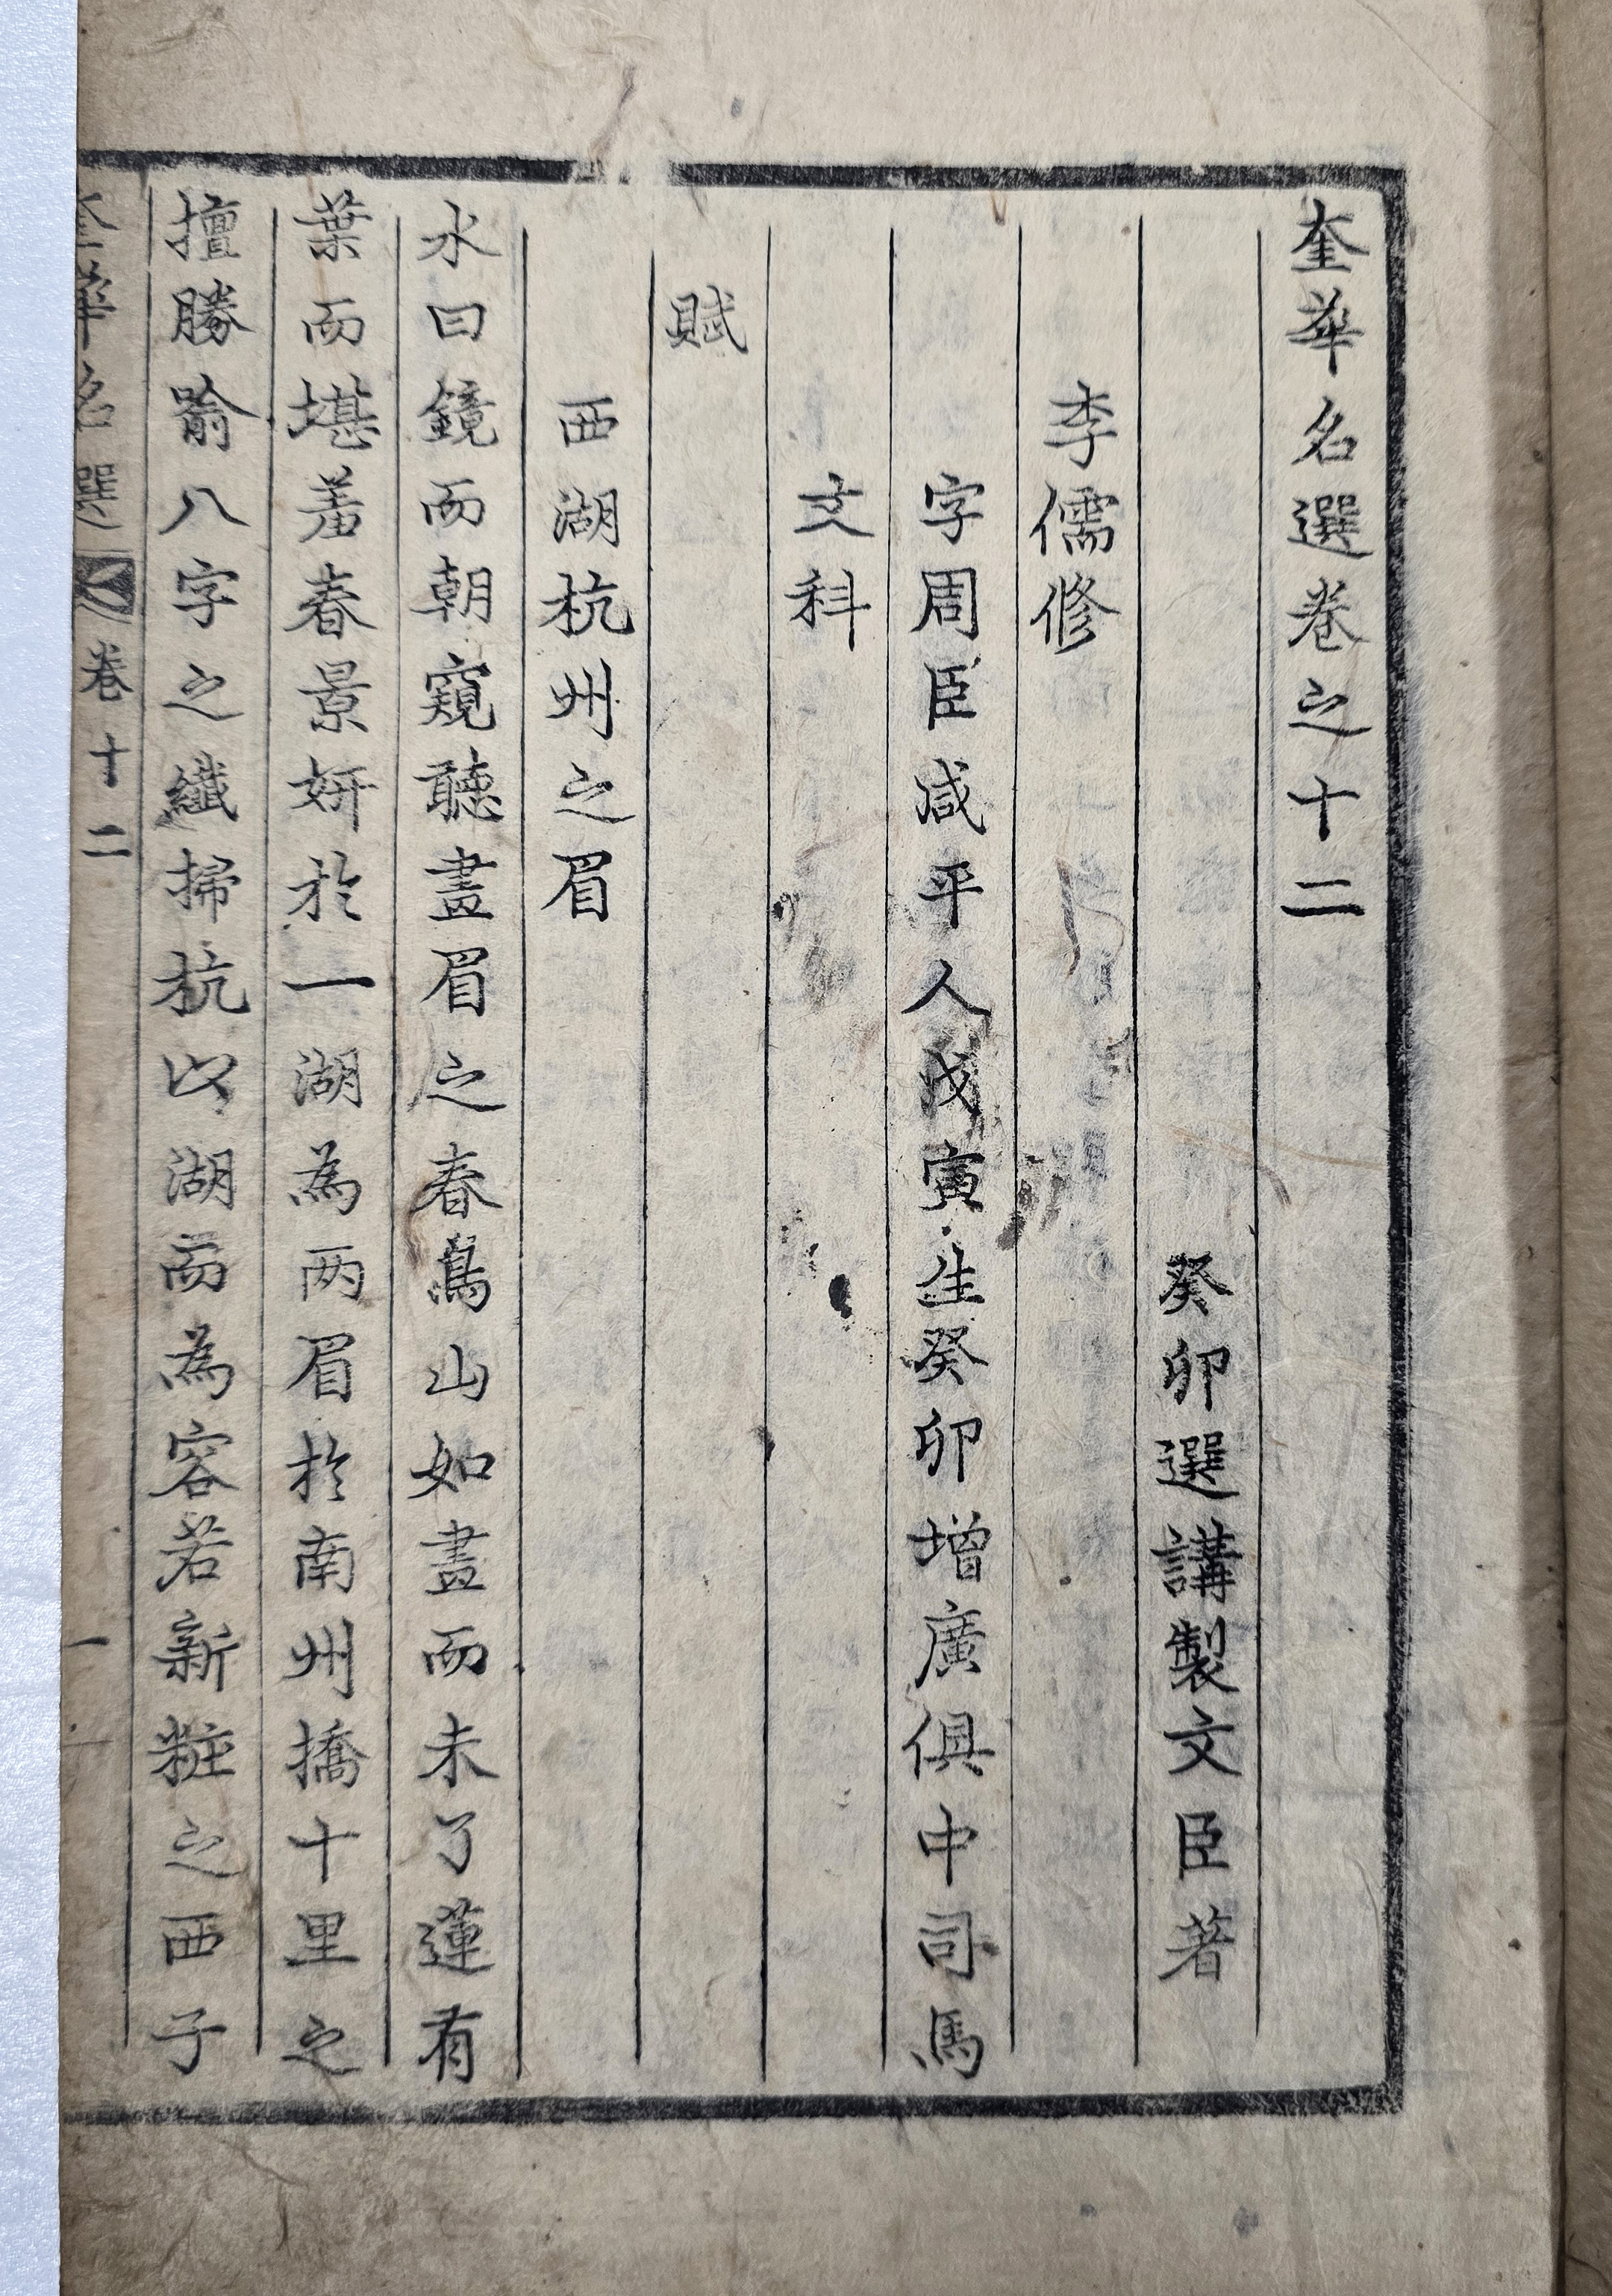 奎華名選卷之十二
癸卯選講製文臣著
李儒修
字周臣咸平人戊寅生癸卯增廣俱中司馬
文科
賦
西湖杭州之眉
水曰鏡而朝窺聽畫眉之春鳥山如畫而未了蓮有
葉而堪羞春景姸於一湖為两眉於南州撟十里之
擅勝觜八字之纎掃杭以湖而為容若新粧之西子
奎華名選 卷十二 一